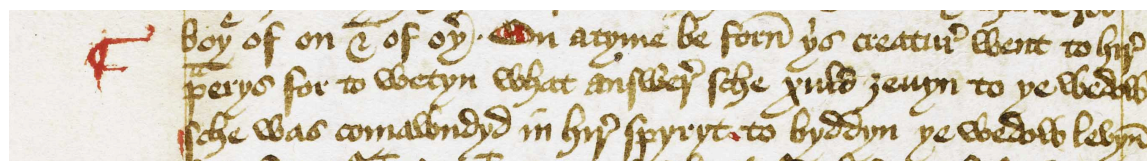 boþ of on & of oþ̉. On a tyme be forn̄ þis creatur̉ went to hir̉
p̉yerys for to wetyn what answer̉ sche xuld ȝeuyn to þe wedow
sche was comawndyd in hir̉ spyryt to byddyn þe wedow leuyn̄